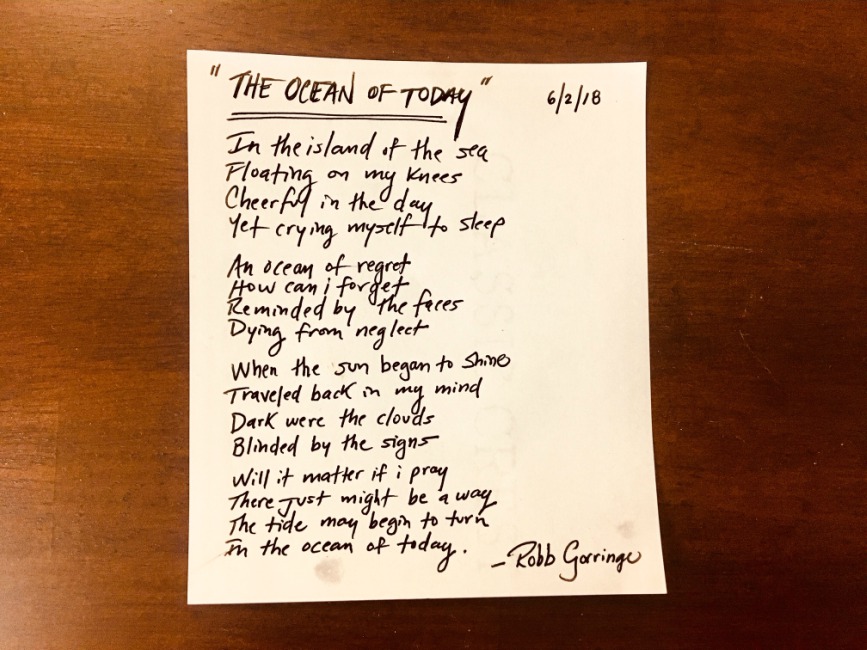 "THE OCEAN OF TODAY"
6/2/18
In the island of the sea
Floating on my knees
Cheerful in the day
Yet crying myself to sleep
An ocean of regret
How can i forget
Reminded by the faces
Dying from neglect
When the sun began to shine
Traveled back in my mind
Dark were the clouds
Blinded by the signs
Will it matter if i pray
There just might be a way
The tide may begin to turn
In the ocean of today.
- Robb Gorringe